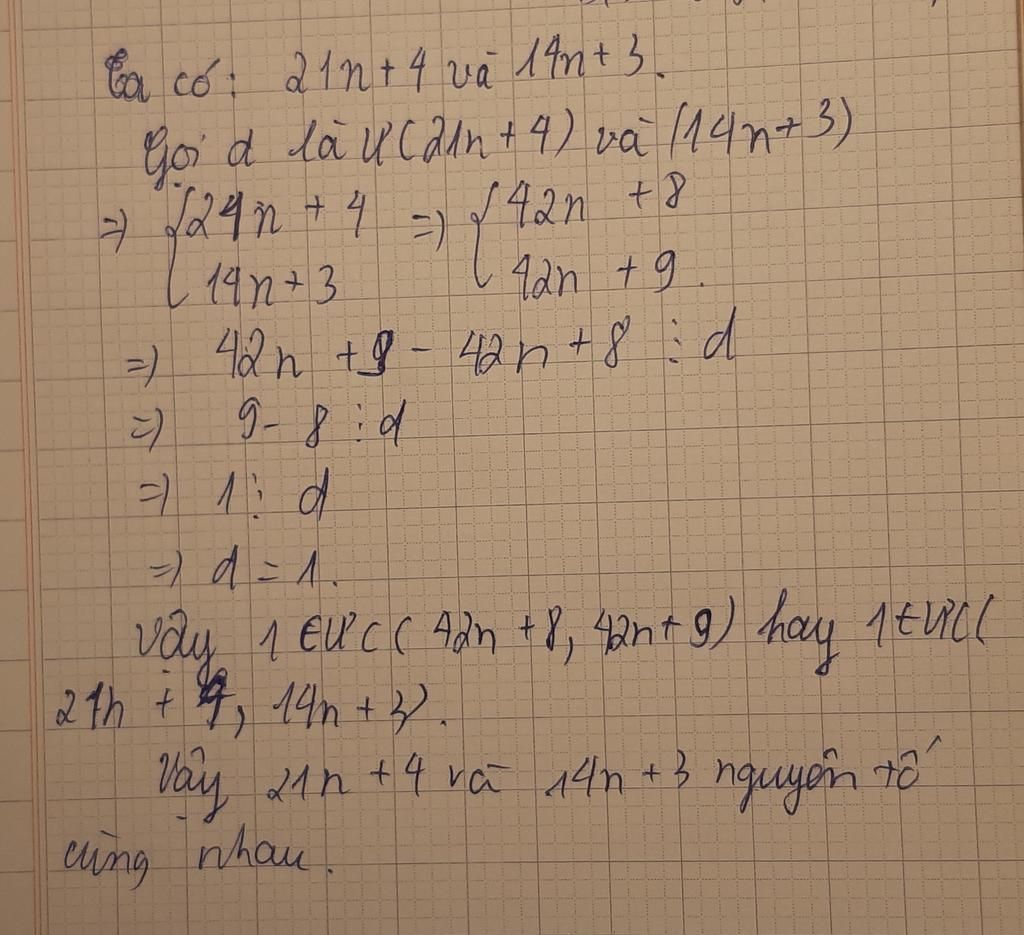 Ta có: 21n + 4 và 14n + 3.
Gọi d là Ư(21n + 4) và (14n + 3)
=> { 24n + 4 => { 42n + 8
14n + 3 42n + 9.
=> 42n + 9 - 42n + 8 ⋮ d
=> 9 - 8 ⋮ d
=> 1 ⋮ d
=> d = 1.
Vậy 1 ∈ ƯC( 42n + 8, 42n + 9) hay 1 ∈ ƯC(
21n + 4, 14n + 3).
Vậy 21n + 4 và 14n + 3 nguyên tố
cùng nhau.